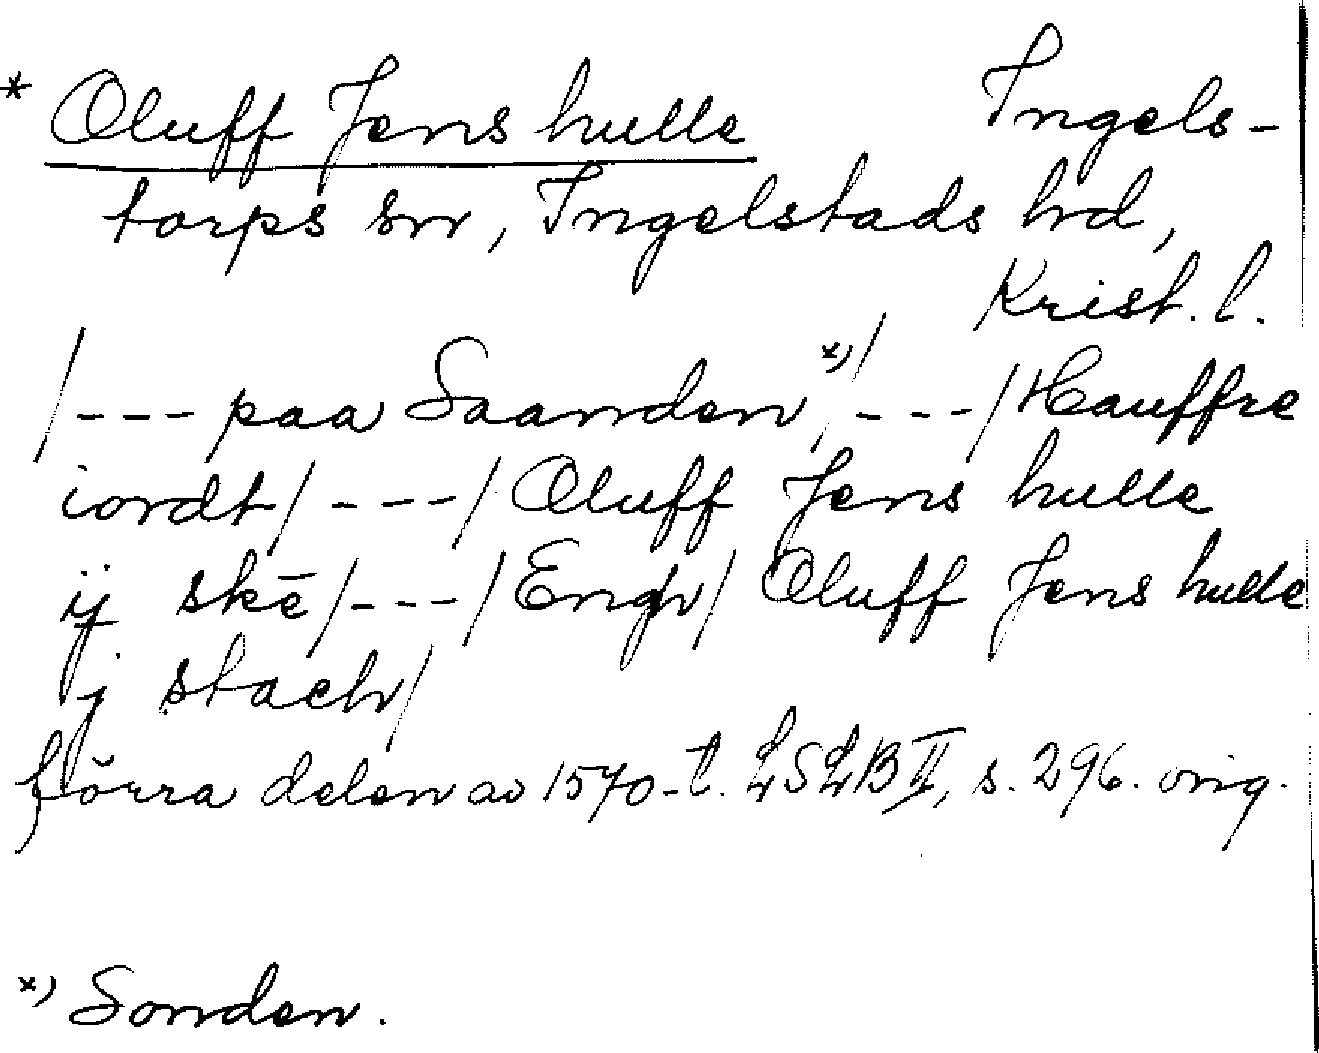 * Oluff Jens hulle Ingels-
torps sn, Ingelstads hd,
Krist. l.
/--- paa Saanden,*)/---/Hauffre
iordt/---/Oluff Jens hulle
ij skē/---/Engh/Oluff Jens hulle
j stach/
förra delen av 1570-t. LSLB II, s. 296. orig.
*) Sonden.